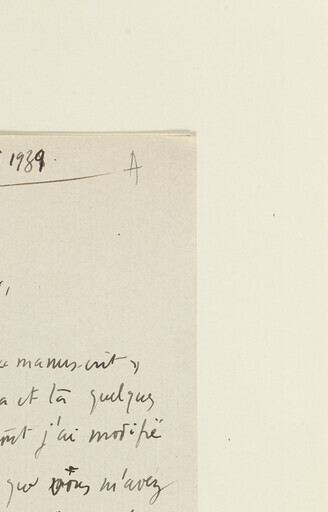 1939. A
,
« manuscrit »
a et là quelques
ont j'ai modifié
que vous m'avez